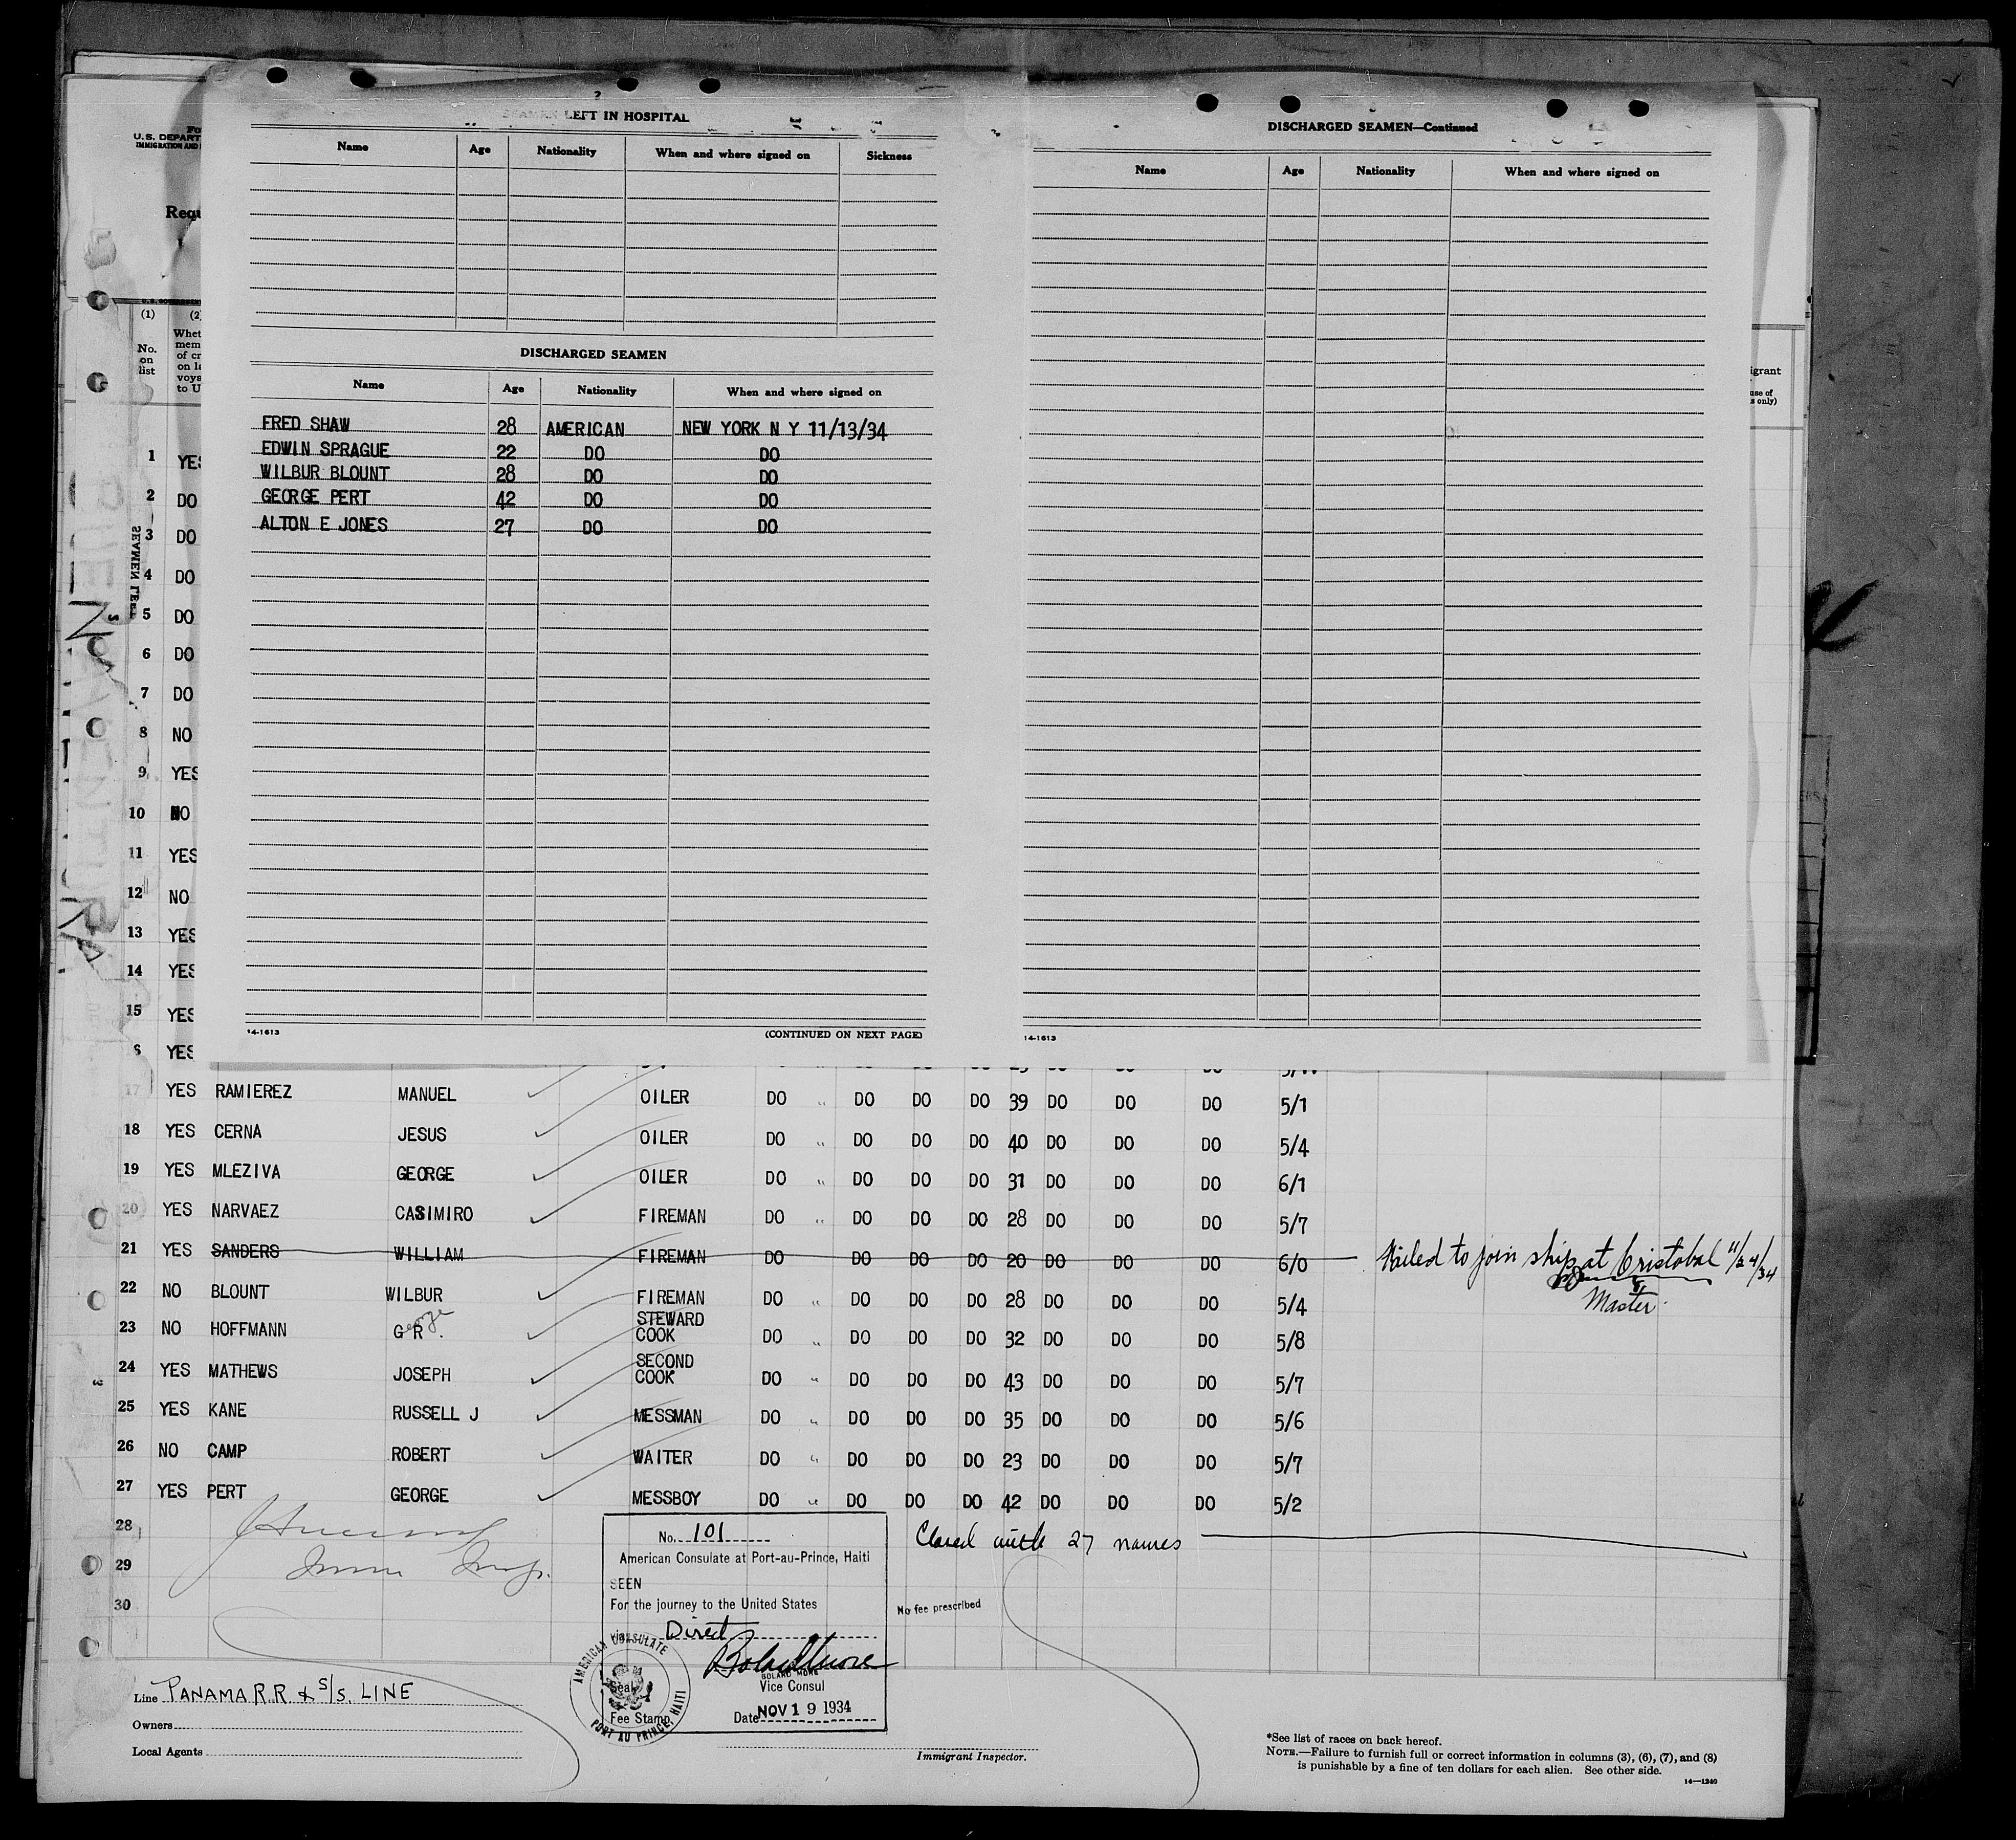 LEFT IN HOSPITAL
Name Age Nationality When and where signed on Sickness
DISCHARGED SEAMEN
Name Age Nationality When and where signed on
FRED SHAW 28 AMERICAN NEW YORK N Y 11/13/34
EDWIN SPRAGUE 22 DO DO
WILBUR BLOUNT 28 DO DO
GEORGE PERT 42 DO DO
ALTON E JONES 27 DO DO
14-1613 (CONTINUED ON NEXT PAGE)
DISCHARGED SEAMEN—Continued
Name Age Nationality When and where signed on
14-1613
U.S. DEPART
IMMIGRATION AND
Requ
(1) (2)
No. on list
Whet
mem
of cr
on la
voya
to U
igrant
use of
s only)
SEAMEN LEFT
1 YES
2 DO
3 DO
4 DO
5 DO
6 DO
7 DO
8 NO
9 YES
10 NO
11 YES
12 NO
13 YES
14 YES
15 YES
6 YES
17 YES RAMIEREZ MANUEL OILER DO " DO DO DO 39 DO DO DO 5/1
18 YES CERNA JESUS OILER DO " DO DO DO 40 DO DO DO 5/4
19 YES MLEZIVA GEORGE OILER DO " DO DO DO 31 DO DO DO 6/1
20 YES NARVAEZ CASIMIRO FIREMAN DO " DO DO DO 28 DO DO DO 5/7
21 YES SANDERS WILLIAM FIREMAN DO DO DO DO 20 DO DO DO 6/0 Failed to join ship at Cristobal 11/24/34
Master.
22 NO BLOUNT WILBUR FIREMAN DO " DO DO DO 28 DO DO DO 5/4
23 NO HOFFMANN G R . George STEWARD COOK DO " DO DO DO 32 DO DO DO 5/8
24 YES MATHEWS JOSEPH SECOND COOK DO " DO DO DO 43 DO DO DO 5/7
25 YES KANE RUSSELL J MESSMAN DO " DO DO DO 35 DO DO DO 5/6
26 NO CAMP ROBERT WAITER DO " DO DO DO 23 DO DO DO 5/7
27 YES PERT GEORGE MESSBOY DO " DO DO DO 42 DO DO DO 5/2
28 Closed with 27 names
29
30
No. 101
American Consulate at Port-au-Prince, Haiti
SEEN
For the journey to the United States
via Direct
No fee prescribed
BOLARD MORE
Vice Consul
Seal
Fee Stamp
Date NOV 19 1934
AMERICAN CONSULATE
PORT AU PRINCE, HAITI
Line PANAMA R.R. & S/S. LINE
Owners
Local Agents
Immigrant Inspector.
*See list of races on back hereof.
NOTE.—Failure to furnish full or correct information in columns (3), (6), (7), and (8)
is punishable by a fine of ten dollars for each alien. See other side.
14—1240